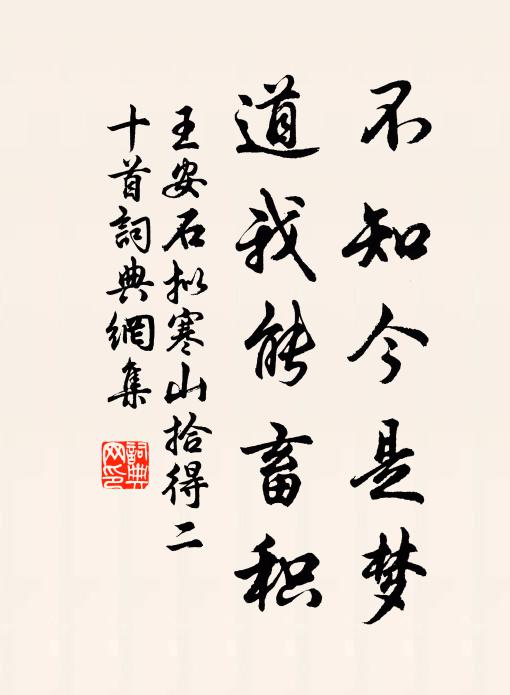 不知今是梦
道我能畜积
王安石拟寒山拾得二
十首詞典網集
詞典
网印